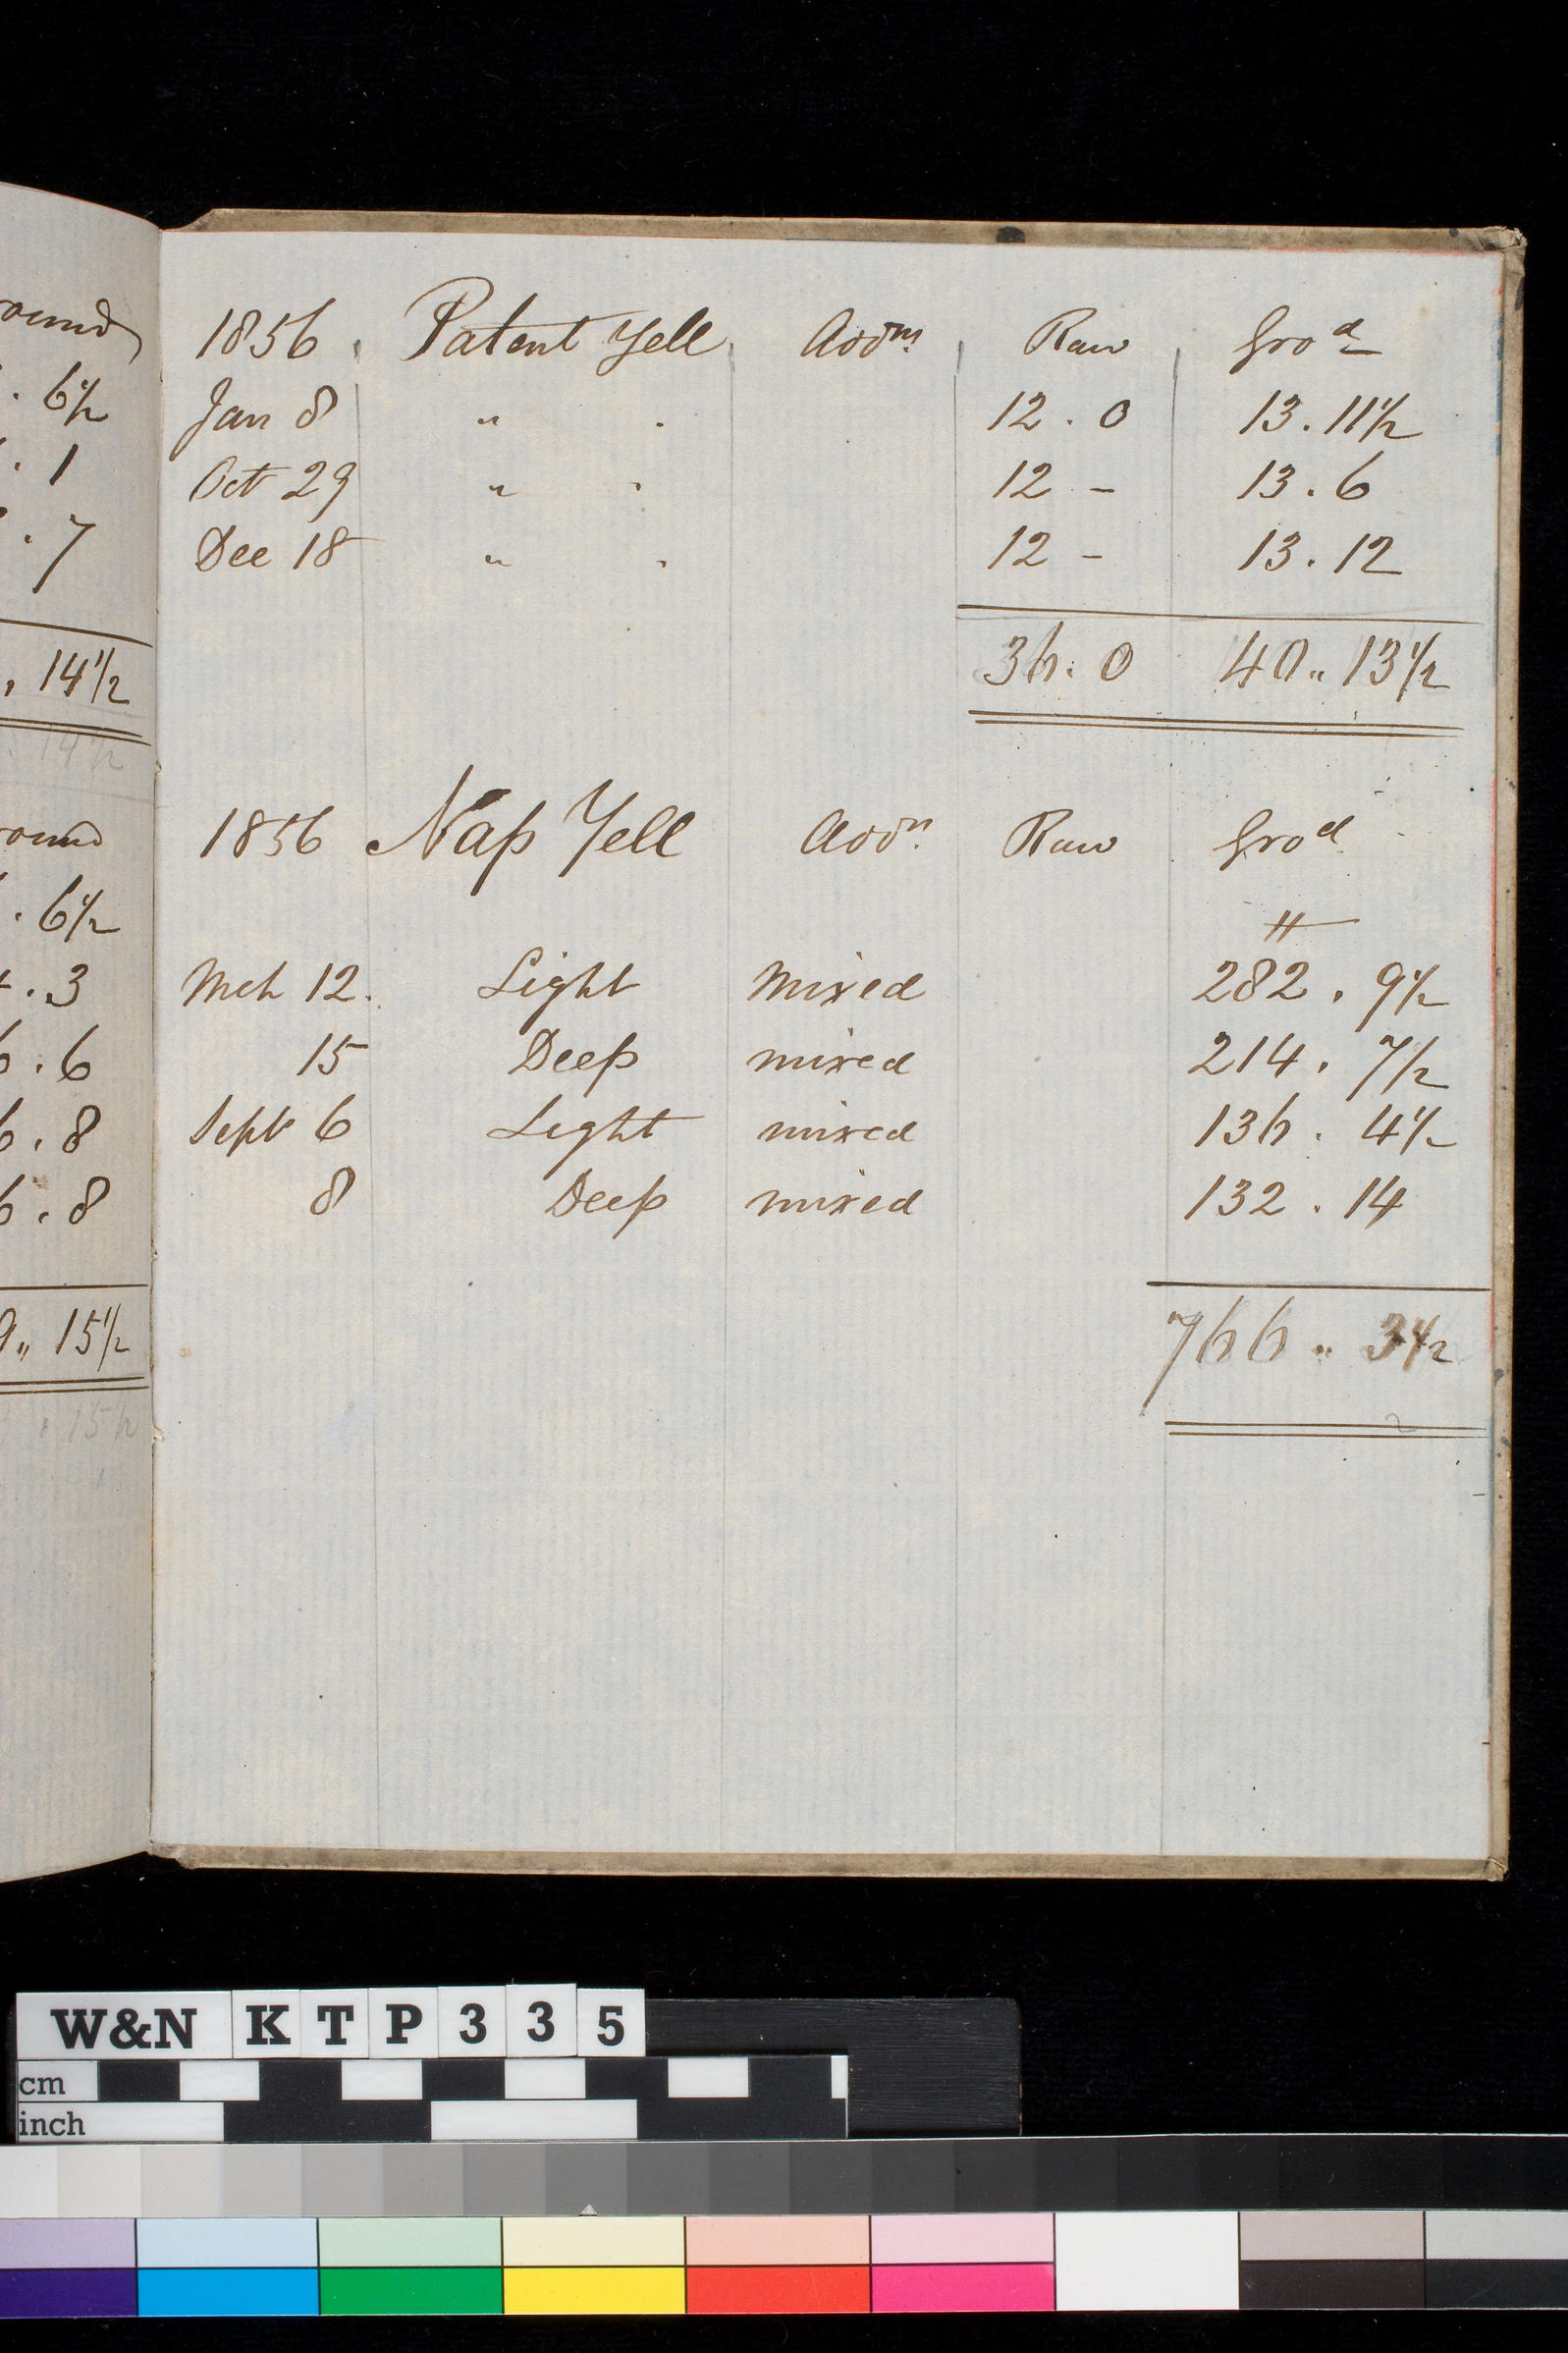 ound
. 6½
. 1
. 7
. 14½
14½
ound
. 6½
. 3
6 . 6
6 . 8
6 . 8
9 „ 15½
15½
1856 Patent Yell Addns. Raw Grod
Jan 8 " . 12 . 0 13 . 11½
Oct 29 " . 12 - 13 . 6
Dec 18 " . 12 - 13 . 12
36 . 0 40 „ 13½
1856 Nap Yell Addn. Raw Grod
Mch 12. Light Mixed 282 . 9½
15 Deep mixed 214 . 7½
Sept 6 Light mixed 136 . 4½
8 Deep mixed 132 . 14
766 „ 3½
W&N KTP335
cm
inch